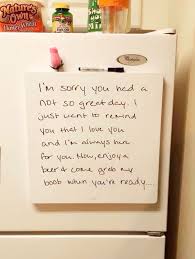 Nature's
Own
Honey Wheat
I'm sorry you had a
not so great day. I
just want to remind
you that I love you
and I'm always here
for you. Now, enjoy a
beer & come grab my
boob when you're ready...